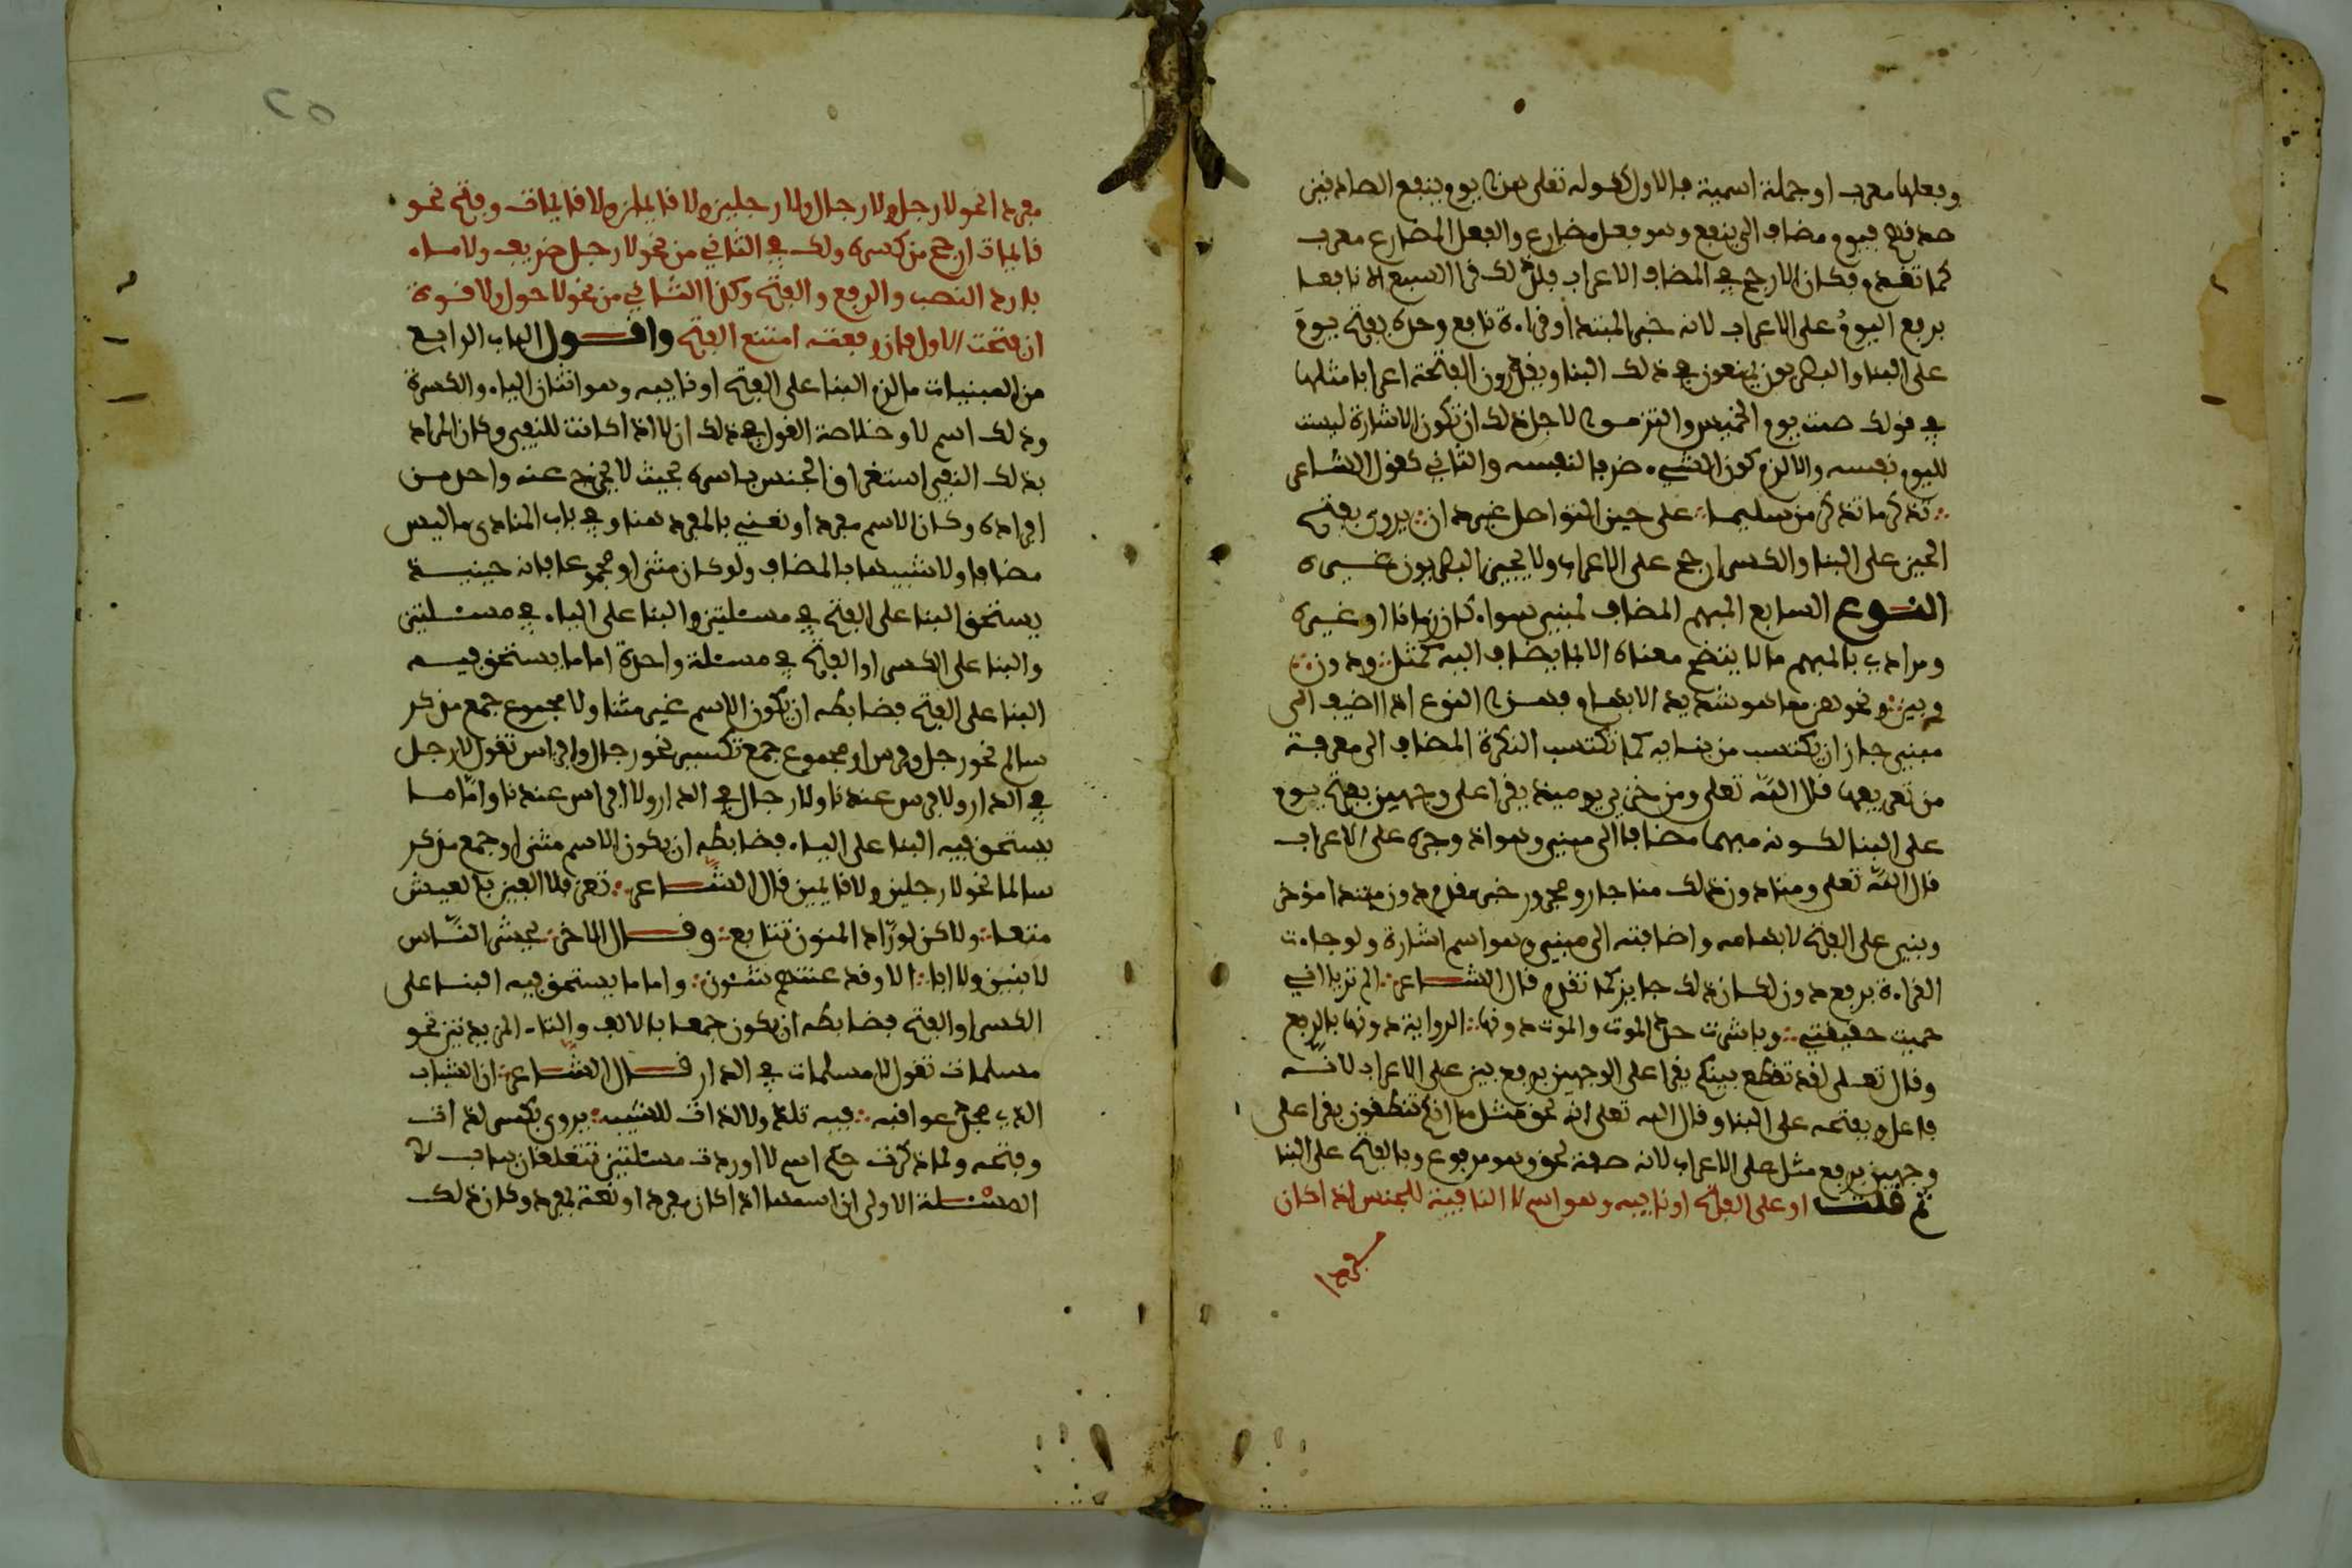 وفعلها معرب او جملة اسمية فالاول كقوله تعلى هذا يوم ينفع الصادقين
صدقهم فيوم مضاف الى ينفع وهو فعل مضارع والفعل المضارع معرب
كما تقدم فكان الارجح في المضاف الاعراب فلذلك قرا السبع الا نافعا
برفع اليوم على الاعراب لانه خبر المبتدا وقراءة نافع وحده بفتح يوم
على البنا والبصريون يمنعون في ذلك البنا ويقدرون الفتحة اعرابا مثلها
في قولك صمت يوم الخميس والتزموا لاجل ذلك ان تكون الاشارة ليست
لليوم نفسه والا لزم كون الشيء ظرفا لنفسه والثاني كقول الشاعر
تذكر ما تذكر من سليما على حين التواصل غير دان يروى بفتح
الحين على البنا والكسر ارجح على الاعراب ولا يجيز البصريون غيره
النوع السابع المبهم المضاف لمبني سواء كان زمانا او غيره
ومرادي بالمبهم ما لا يتضح معناه الا بما يضاف اليه كمثل ودون
وبين ونحوهن مما هو شديد الابهام فهذا النوع اذا اضيف الى
مبني جاز ان يكتسب من بنايه كما تكتسب النكرة المضاف الى معرفة
من تعريفها قال الله تعلى ومن خزي يوميذ يقرا على وجهين بفتح يوم
على البنا لكونه مبهما مضافا الى مبني وهو اذ وجره على الاعراب
قال الله تعلى ومنا دون ذلك منا جار ومجرور خبر مقدم ودون مبتدا موخر
وبني على الفتح لابهامه واضافته الى مبني وهو اسم اشارة ولو جاءت
القراءة برفع دون لكان ذلك جايز كما تقدم قال الشاعر الم تريا اني
حميت حقيقتي وباشرت حد الموت والموت دونها الرواية دونها بالرفع
وقال تعلى لقد تقطع بينكم يقرا على الوجهين برفع بين على الاعراب لانه
فاعل وبفتحه على البنا وقال الله تعلى انه لحق مثل ما انكم تنطقون يقرا على
وجهين برفع مثل على الاعراب لانه صفة لحق وهو مرفوع وبالفتح على البنا
ثم قلت او على الفتح او نايبه وهو اسم لا النافية للجنس اذا كان
مفردا
٢٥
مفردا نحو لا رجل ولا رجال ولا رجلين ولا قايمين ولا قايمات وفتح نحو
قايمات ارجح من كسره ولك في الثاني من نحو لا رجل ظريف ولا ماء
بارد النصب والرفع والفتح وكذا الثاني من نحو لا حول ولا قوة
ان فتحت الاول فان رفعته امتنع الفتح واقول الباب الرابع
من المبنيات ما لزم البنا على الفتح او نايبه وهو اثنان الياء والكسرة
وذلك اسم لا وخلاصة القول في ذلك ان لا اذا كانت للنفي وكان المراد
بذلك النفي استغراق الجنس باسره بحيث لا يخرج عنه واحد من
افراده وكان الاسم مفردا ونعني بالمفرد هنا وفي باب المنادى ما ليس
مضافا ولا شبيها بالمضاف ولو كان مثنى او مجموعا فانه حينيذ
يستحق البنا على الفتح في مسئلتين والبنا على الياء في مسئلتين
والبنا على الكسر او الفتح في مسئلة واحدة اما ما يستحق فيه
البنا على الفتح فضابطه ان يكون الاسم غير مثنا ولا مجموع جمع مذكر
سالم نحو رجل وفرس او مجموع جمع تكسير نحو رجال وافراس تقول لا رجل
في الدار ولا فرس عندنا ولا رجال في الدار ولا افراس عندنا واما ما
يستحق فيه البنا على الياء فضابطه ان يكون الاسم مثنى او جمع مذكر
سالما نحو لا رجلين ولا قايمين قال الشاعر تعز فلا الفين بالعيش
متعا ولاكن لوراد المنون تتابع وقال الاخر يحشر الناس
لا بنين ولا ابا الا وقد عنتهم شئون واما ما يستحق فيه البنا على
الكسر او الفتح فضابطه ان يكون جمعا بالالف والتاء المزيدتين نحو
مسلمات تقول لا مسلمات في الدار قال الشاعر ان الشباب
الذي مجد عواقبه فيه نلذ ولا لذات للشيب يروى بكسر لذات
وفتحه ولما ذكرت حكم اسم لا اوردت مسئلتين تتعلقان بباب لا
المسئلة الاولى ان اسمها اذا كان مفردا ونعت بمفرد وكان ذلك